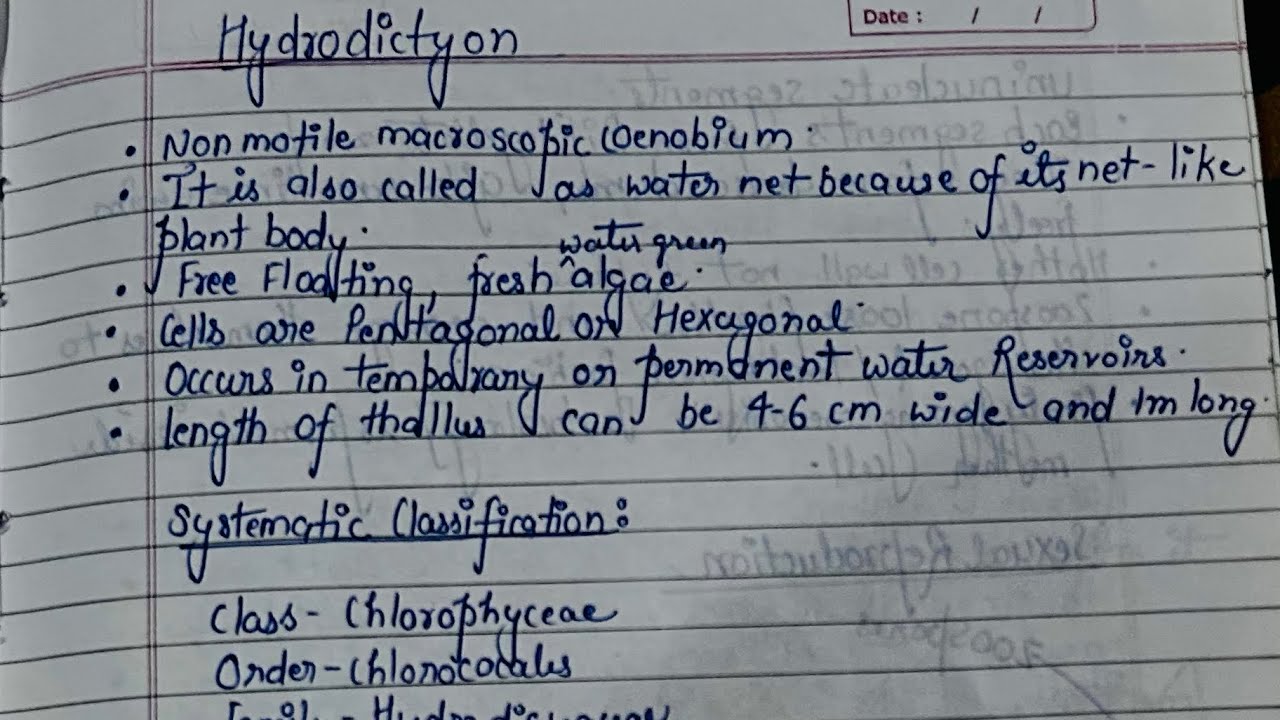 Date : / /
Hydrodictyon
• Non motile macroscopic Coenobium.
• It is also called as water net because of its net-like
plant body.
water green
• Free Floating, fresh ^ algae.
• Cells are Pentagonal or Hexagonal.
• Occurs in temporary or permanent water Reservoirs.
• length of thallus can be 4-6 cm wide and 1m long.
Systematic Classification:
Class - Chlorophyceae
Order - Chlorococales